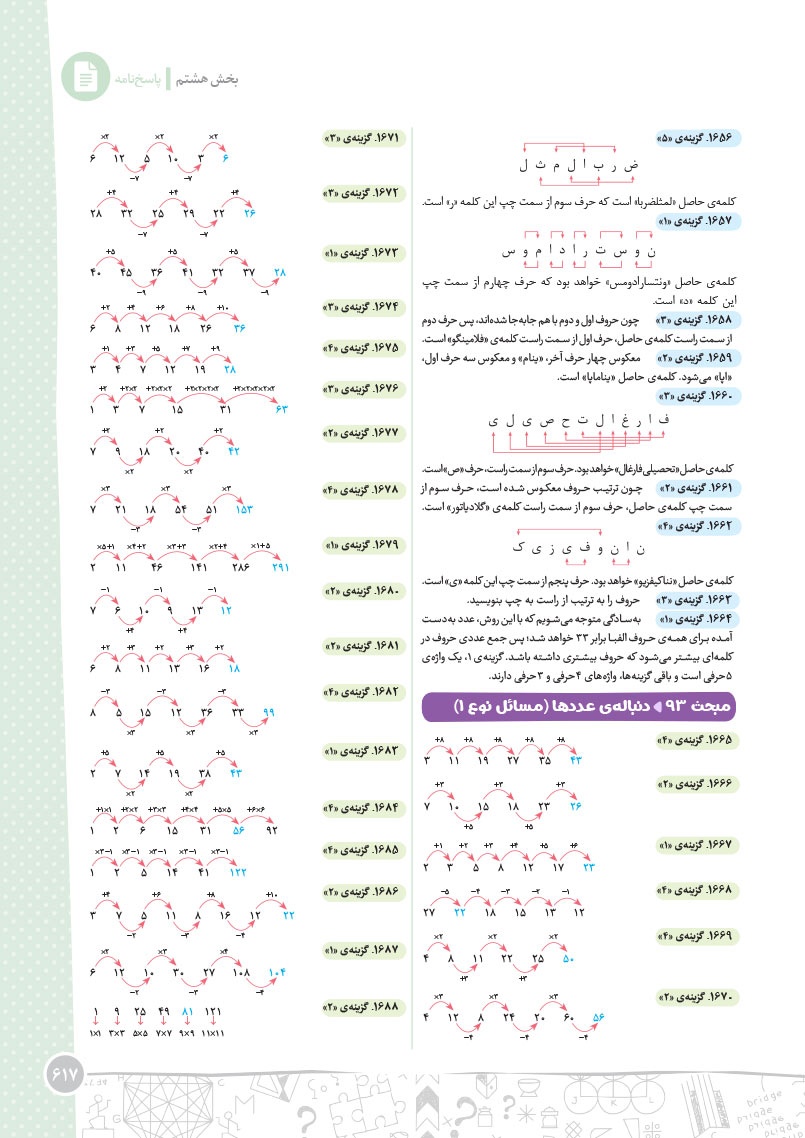 بخش هشتم | پاسخ‌نامه
۱۶۵۶. گزینه‌ی «۵»
ض ر ب ا ل م ث ل
کلمه‌ی حاصل «لمثلضربا» است که حرف سوم از سمت چپ این کلمه «ر» است.
۱۶۵۷. گزینه‌ی «۱»
ن و س ت ر ا د ا م و س
کلمه‌ی حاصل «ونتسارادومس» خواهد بود که حرف چهارم از سمت چپ
این کلمه «د» است.
۱۶۵۸. گزینه‌ی «۳» چون حروف اول و دوم با هم جابه‌جا شده‌اند، پس حرف دوم
از سمت راست کلمه‌ی حاصل، حرف اول از سمت راست کلمه‌ی «فلامینگو» است.
۱۶۵۹. گزینه‌ی «۲» معکوس چهار حرف آخر، «ینام» و معکوس سه حرف اول،
«اپا» می‌شود. کلمه‌ی حاصل «یناماپا» است.
۱۶۶۰. گزینه‌ی «۳»
ف ا ر غ ا ل ت ح ص ی ل ی
کلمه‌ی حاصل «تحصیلی‌فارغال» خواهد بود. حرف سوم از سمت راست، حرف «ص» است.
۱۶۶۱. گزینه‌ی «۲» چون ترتیب حروف معکوس شده است، حرف سوم از
سمت چپ کلمه‌ی حاصل، حرف سوم از سمت راست کلمه‌ی «گلادیاتور» است.
۱۶۶۲. گزینه‌ی «۴»
ن ا ن و ف ی ز ی ک
کلمه‌ی حاصل «نناکیفزیو» خواهد بود. حرف پنجم از سمت چپ این کلمه «ی» است.
۱۶۶۳. گزینه‌ی «۳» حروف را به ترتیب از راست به چپ بنویسید.
۱۶۶۴. گزینه‌ی «۱» به‌سادگی متوجه می‌شویم که با این روش، عدد به‌دست
آمده برای همه‌ی حروف الفبا برابر ۳۳ خواهد شد؛ پس جمع عددی حروف در
کلمه‌ای بیشتر می‌شود که حروف بیشتری داشته باشد. گزینه‌ی ۱، یک واژه‌ی
۵حرفی است و باقی گزینه‌ها، واژه‌های ۴حرفی و ۳حرفی دارند.
مبحث ۹۳ دنباله‌ی عددها (مسائل نوع ۱)
۱۶۶۵. گزینه‌ی «۴»
+۸ +۸ +۸ +۸ +۸
۳ ۱۱ ۱۹ ۲۷ ۳۵ ۴۳
۱۶۶۶. گزینه‌ی «۲»
+۳ +۳ +۳
۷ ۱۰ ۱۵ ۱۸ ۲۳ ۲۶
+۵ +۵
۱۶۶۷. گزینه‌ی «۱»
+۱ +۲ +۳ +۴ +۵ +۶
۲ ۳ ۵ ۸ ۱۲ ۱۷ ۲۳
۱۶۶۸. گزینه‌ی «۴»
−۵ −۴ −۳ −۲ −۱
۲۷ ۲۲ ۱۸ ۱۵ ۱۳ ۱۲
۱۶۶۹. گزینه‌ی «۴»
×۲ ×۲ ×۲
۴ ۸ ۱۱ ۲۲ ۲۵ ۵۰
+۳ +۳
۱۶۷۰. گزینه‌ی «۲»
×۳ ×۳ ×۳
۴ ۱۲ ۸ ۲۴ ۲۰ ۶۰ ۵۶
−۴ −۴ −۴
۱۶۷۱. گزینه‌ی «۳»
×۲ ×۲ ×۲
۶ ۱۲ ۵ ۱۰ ۳ ۶
−۷ −۷
۱۶۷۲. گزینه‌ی «۳»
+۴ +۴ +۴
۲۸ ۳۲ ۲۵ ۲۹ ۲۲ ۲۶
−۷ −۷
۱۶۷۳. گزینه‌ی «۱»
+۵ +۵ +۵
۴۰ ۴۵ ۳۶ ۴۱ ۳۲ ۳۷ ۲۸
−۹ −۹ −۹
۱۶۷۴. گزینه‌ی «۳»
+۲ +۴ +۶ +۸ +۱۰
۶ ۸ ۱۲ ۱۸ ۲۶ ۳۶
۱۶۷۵. گزینه‌ی «۴»
+۱ +۳ +۵ +۷ +۹
۳ ۴ ۷ ۱۲ ۱۹ ۲۸
۱۶۷۶. گزینه‌ی «۳»
+۲ +۲×۲ +۲×۲×۲ +۲×۲×۲×۲ +۲×۲×۲×۲×۲
۱ ۳ ۷ ۱۵ ۳۱ ۶۳
۱۶۷۷. گزینه‌ی «۲»
+۲ +۲ +۲
۷ ۹ ۱۸ ۲۰ ۴۰ ۴۲
×۲ ×۲
۱۶۷۸. گزینه‌ی «۴»
×۳ ×۳ ×۳
۷ ۲۱ ۱۸ ۵۴ ۵۱ ۱۵۳
−۳ −۳
۱۶۷۹. گزینه‌ی «۱»
×۵+۱ ×۴+۲ ×۳+۳ ×۲+۴ ×۱+۵
۲ ۱۱ ۴۶ ۱۴۱ ۲۸۶ ۲۹۱
۱۶۸۰. گزینه‌ی «۲»
−۱ −۱ −۱
۷ ۶ ۱۰ ۹ ۱۳ ۱۲
+۴ +۴
۱۶۸۱. گزینه‌ی «۲»
+۲ +۳ +۲ +۳ +۲
۶ ۸ ۱۱ ۱۳ ۱۶ ۱۸
۱۶۸۲. گزینه‌ی «۴»
−۳ −۳ −۳
۸ ۵ ۱۵ ۱۲ ۳۶ ۳۳ ۹۹
×۳ ×۳ ×۳
۱۶۸۳. گزینه‌ی «۱»
+۵ +۵ +۵
۲ ۷ ۱۴ ۱۹ ۳۸ ۴۳
×۲ ×۲
۱۶۸۴. گزینه‌ی «۴»
+۱×۱ +۲×۲ +۳×۳ +۴×۴ +۵×۵ +۶×۶
۱ ۲ ۶ ۱۵ ۳۱ ۵۶ ۹۲
۱۶۸۵. گزینه‌ی «۴»
×۳−۱ ×۳−۱ ×۳−۱ ×۳−۱ ×۳−۱
۱ ۲ ۵ ۱۴ ۴۱ ۱۲۲
۱۶۸۶. گزینه‌ی «۲»
+۴ +۶ +۸ +۱۰
۳ ۷ ۵ ۱۱ ۸ ۱۶ ۱۲ ۲۲
−۲ −۳ −۴
۱۶۸۷. گزینه‌ی «۱»
×۲ ×۳ ×۴
۶ ۱۲ ۱۰ ۳۰ ۲۷ ۱۰۸ ۱۰۴
−۲ −۳ −۴
۱۶۸۸. گزینه‌ی «۲»
۱ ۹ ۲۵ ۴۹ ۸۱ ۱۲۱
۱×۱ ۳×۳ ۵×۵ ۷×۷ ۹×۹ ۱۱×۱۱
۶۱۷